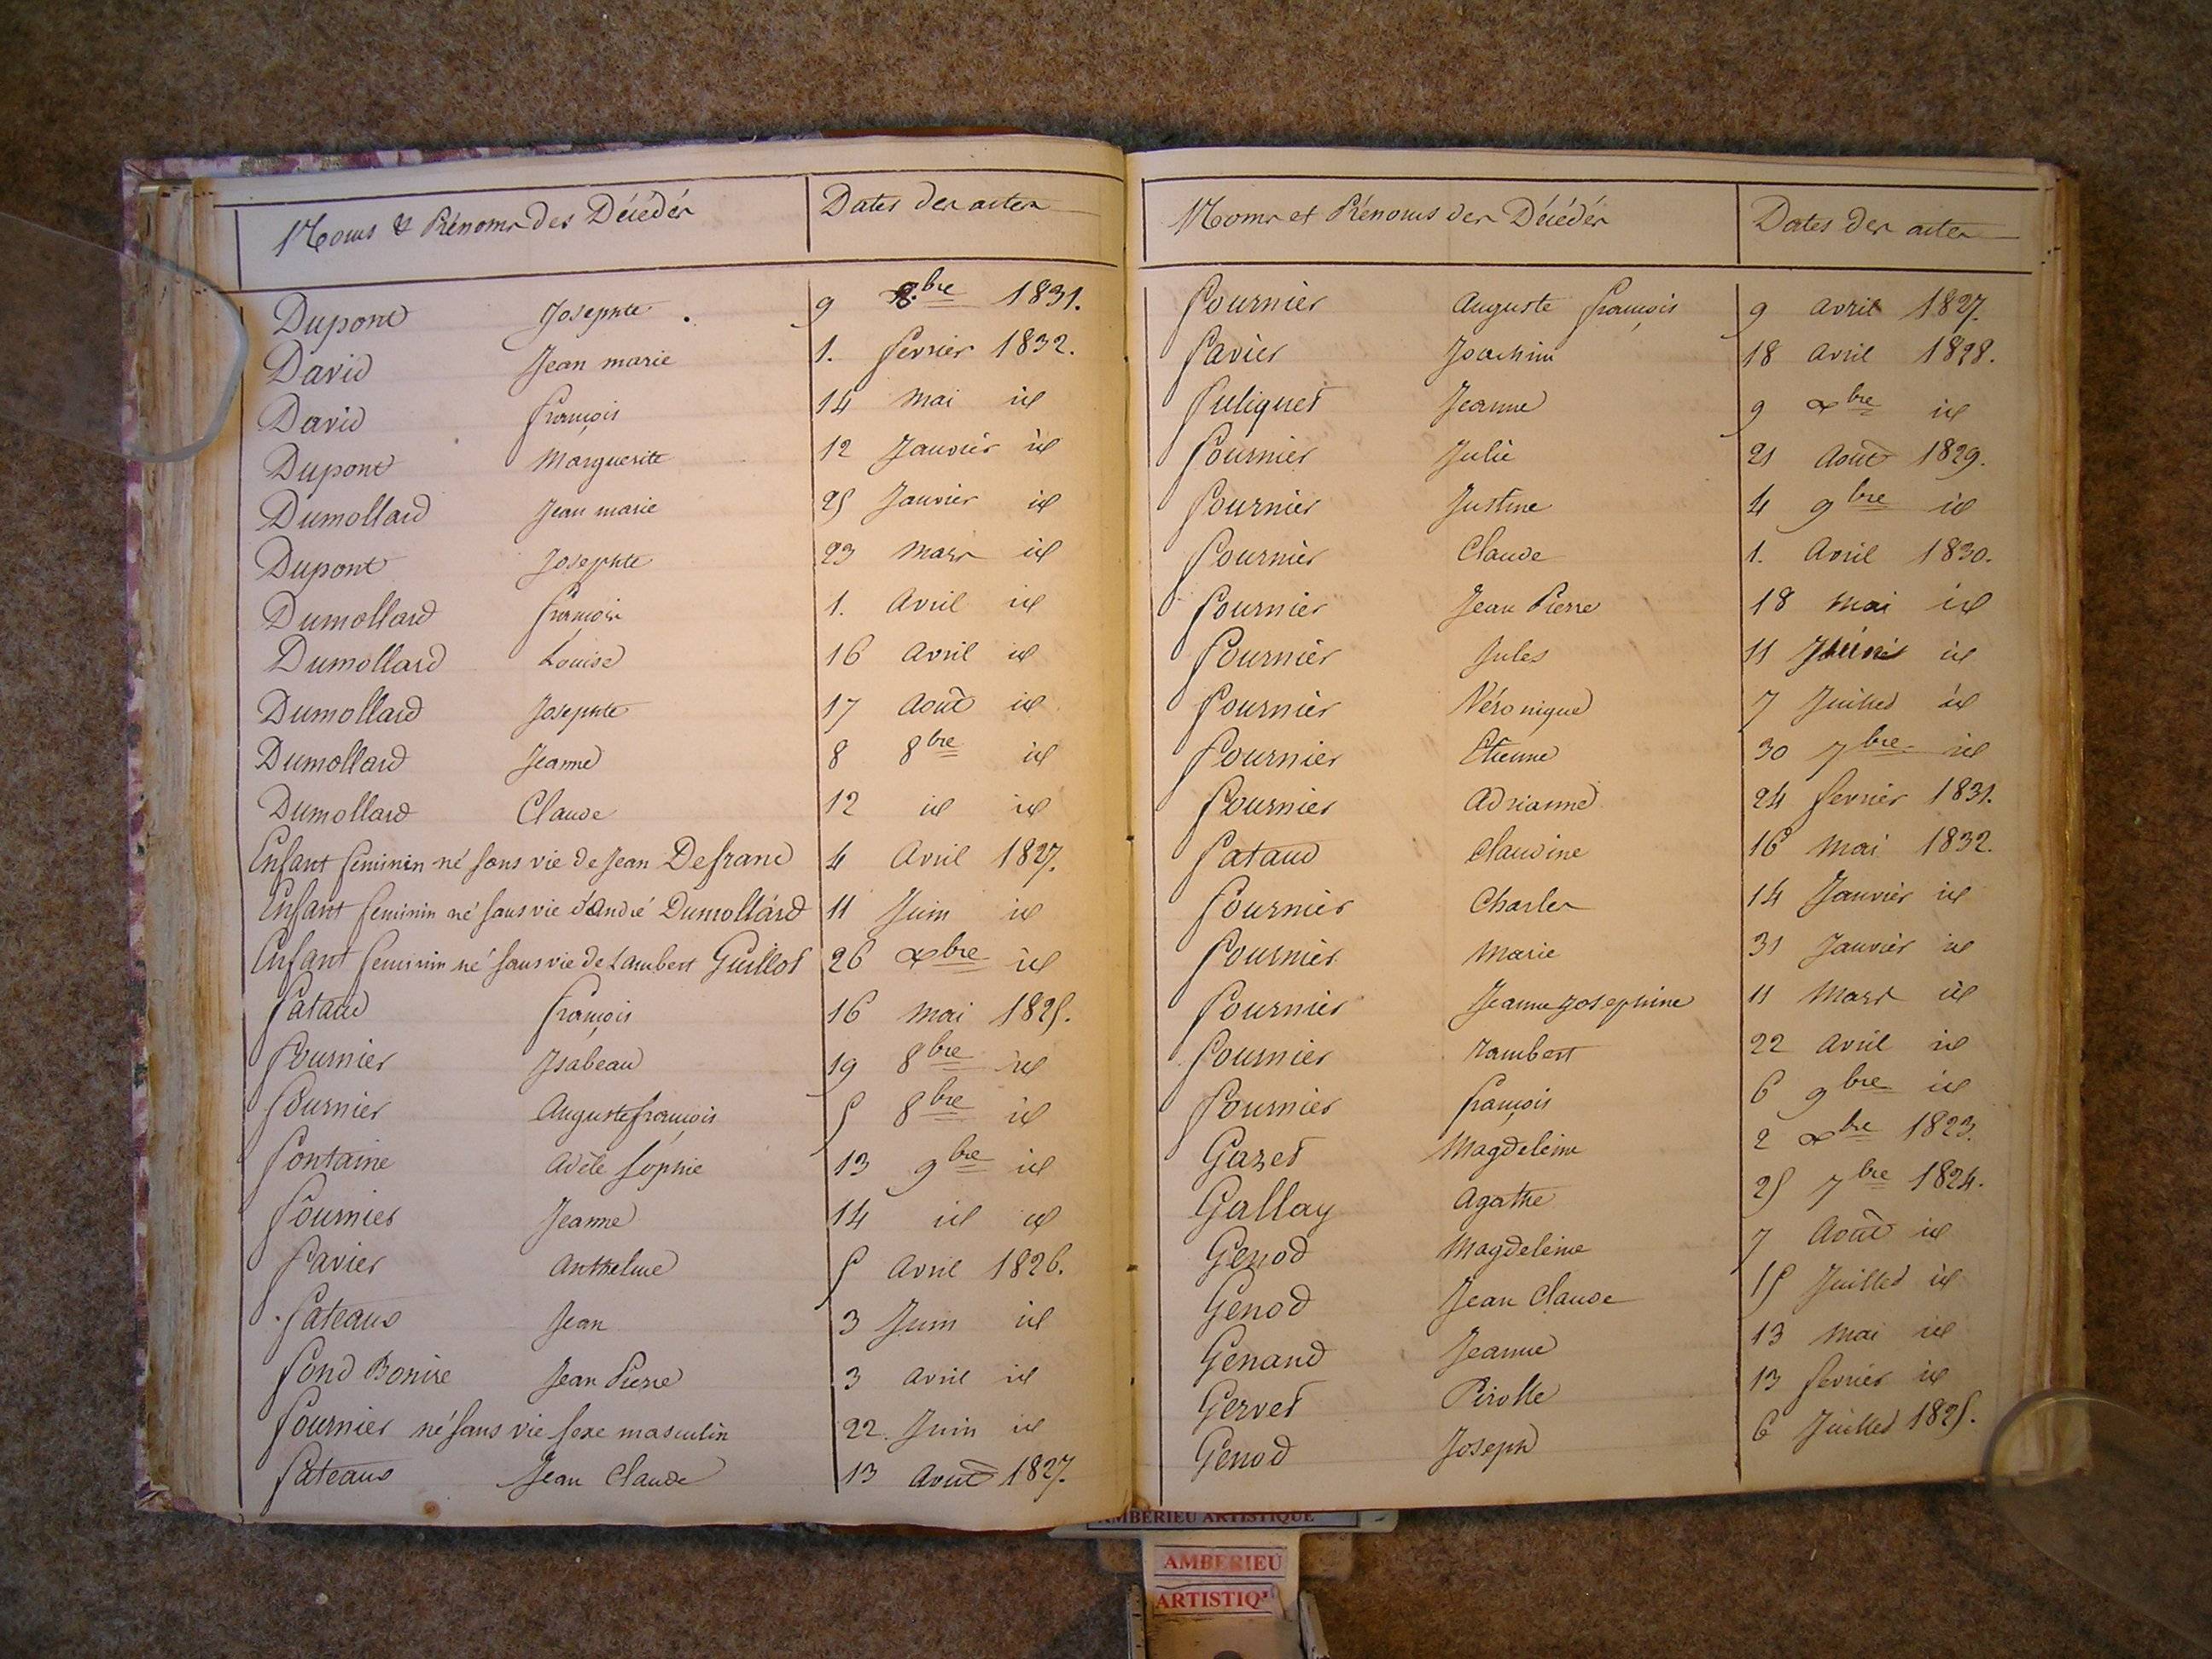 Noms & Prénoms des Décédés Dates des actes
Dupont Josephte . 9 8.bre 1831.
David Jean marie 1. fevrier 1832.
David françois 14 Mai id
Dupont Marguerite 12 Janvier id
Dumollard Jean marie 25 Janvier id
Dupont Josephte 23 Mars id
Dumollard françois 1. Avril id
Dumollard Louise 16 Avril id
Dumollard Josephte 17 Août id
Dumollard Jeanne 8 8bre id
Dumollard Claude 12 id id
Enfant feminin né sans vie de Jean Defranc 4 Avril 1827.
Enfant feminin né sans vie d'André Dumollard 11 Juin id
Enfant feminin né sans vie de Lambert Guillot 26 xbre id
fataud françois 16 Mai 1825.
fournier Isabeau 19 8bre id
fournier Auguste françois 5 8bre id
fontaine Adèle Sophie 13 9bre id
fournier Jeanne 14 id id
favier Anthelme 5 Avril 1826.
fateaud Jean 3 Juin id
fond Bonire Jean Pierre 3 Avril id
fournier né sans vie sexe masculin 22. Juin id
fateaud Jean Claude 13 Août 1827.
Noms et Prénoms des Décédés Dates des actes
fournier Auguste françois 9 Avril 1827.
favier Joachim 18 Avril 1828.
fuliquet Jeanne 9 xbre id
fournier Julie 21 Août 1829.
fournier Justine 4 9bre id
fournier Claude 1. Avril 1830.
fournier Jean Pierre 18 Mai id
fournier Jules 11 id
fournier Véronique 7 Juillet id
fournier Etienne 30 7bre id
fournier Adrianne 24 fevrier 1831.
fataud Claudine 16 Mai 1832.
fournier Charles 14 Janvier id
fournier Marie 31 Janvier id
fournier Jeanne Josephine 11 Mars id
fournier Lambert 22 Avril id
fournier françois 6 9bre id
Gazet Magdeleine 2 xbre 1823.
Gallay Agathe 25 7bre 1824.
Genod Magdeleine 7 Août id
Genod Jean Claude 15 Juillet id
Genaud Jeanne 13 Mai id
Gervet Pirolle 13 fevrier id
Genod Joseph 6 Juillet 1825.
AMBERIEU ARTISTIQUE
AMBERIEU
ARTISTIQ